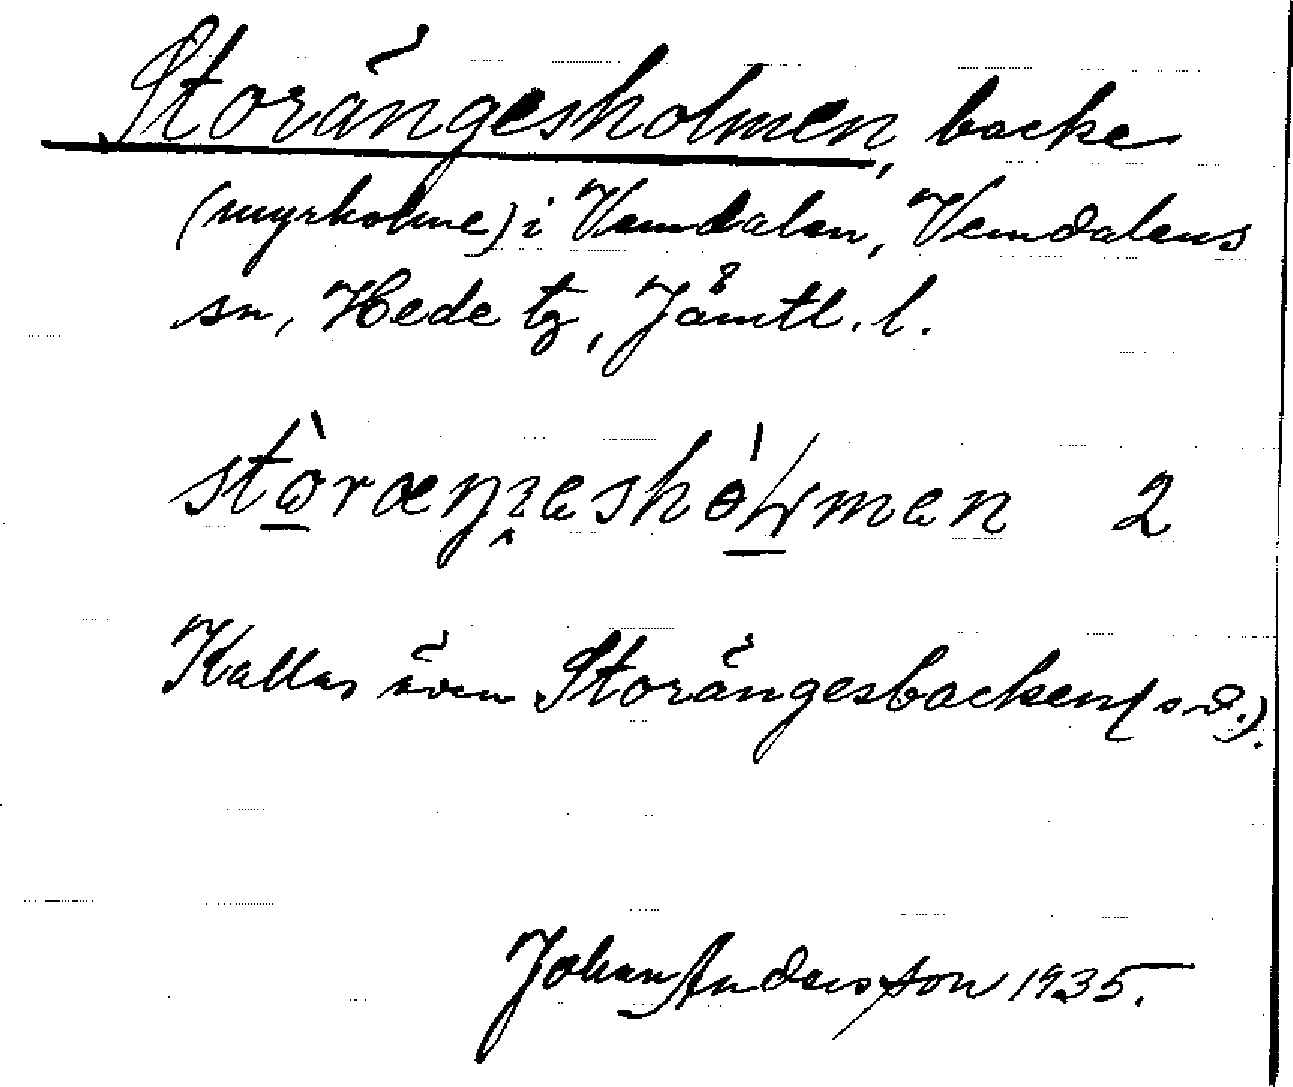 Storängesholmen, backe
(myrholme) i Vemdalen, Vemdalens
sn, Hede tg, Jämtl. l.
stòræŋeshòɫmen 2
Kallas även Storängesbacken (s.d.).
Johan Andersson 1935.